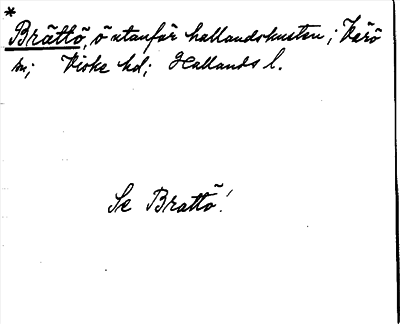 *
Brättö, ö utanför hallandskusten; Värö
sn; Viske hd; Hallands l.
Se Brattö!